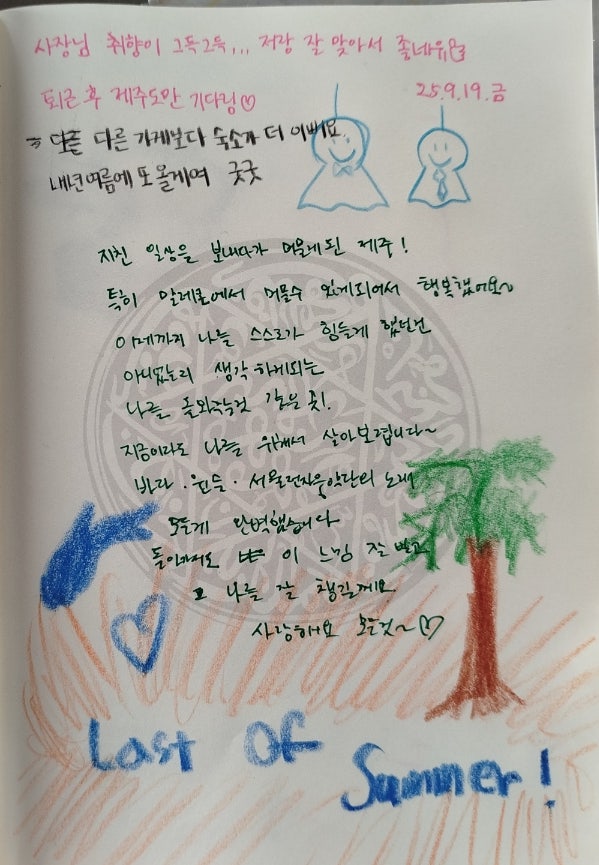 사장님 취향이 그득그득,,, 저랑 잘 맞아서 좋네유
퇴근 후 제주도만 기다링♡
25.9.19.금
⇒ 다른 가게보다 숙소가 더 이뻐요.
내년여름에 또 올게여 굿굿
지친 일상을 보내다가 머물게 된 제주!
특히 말레톤에서 머물수 있게되어서 행복했어요~
이제까지 나를 스스로가 힘들게 했던건
아니였는지 생각하게되는
나를 돌아보는것 같은 곳!.
지금이라도 나를 위해서 살아보렵니다~
바다·윈들·서울전자음악단의 노래
모든게 완벽했습니다
돌아가서도 이 느낌 잘 받고
나를 잘 챙길게요.
사랑해요 모든것~♡
Last Of
Summer!